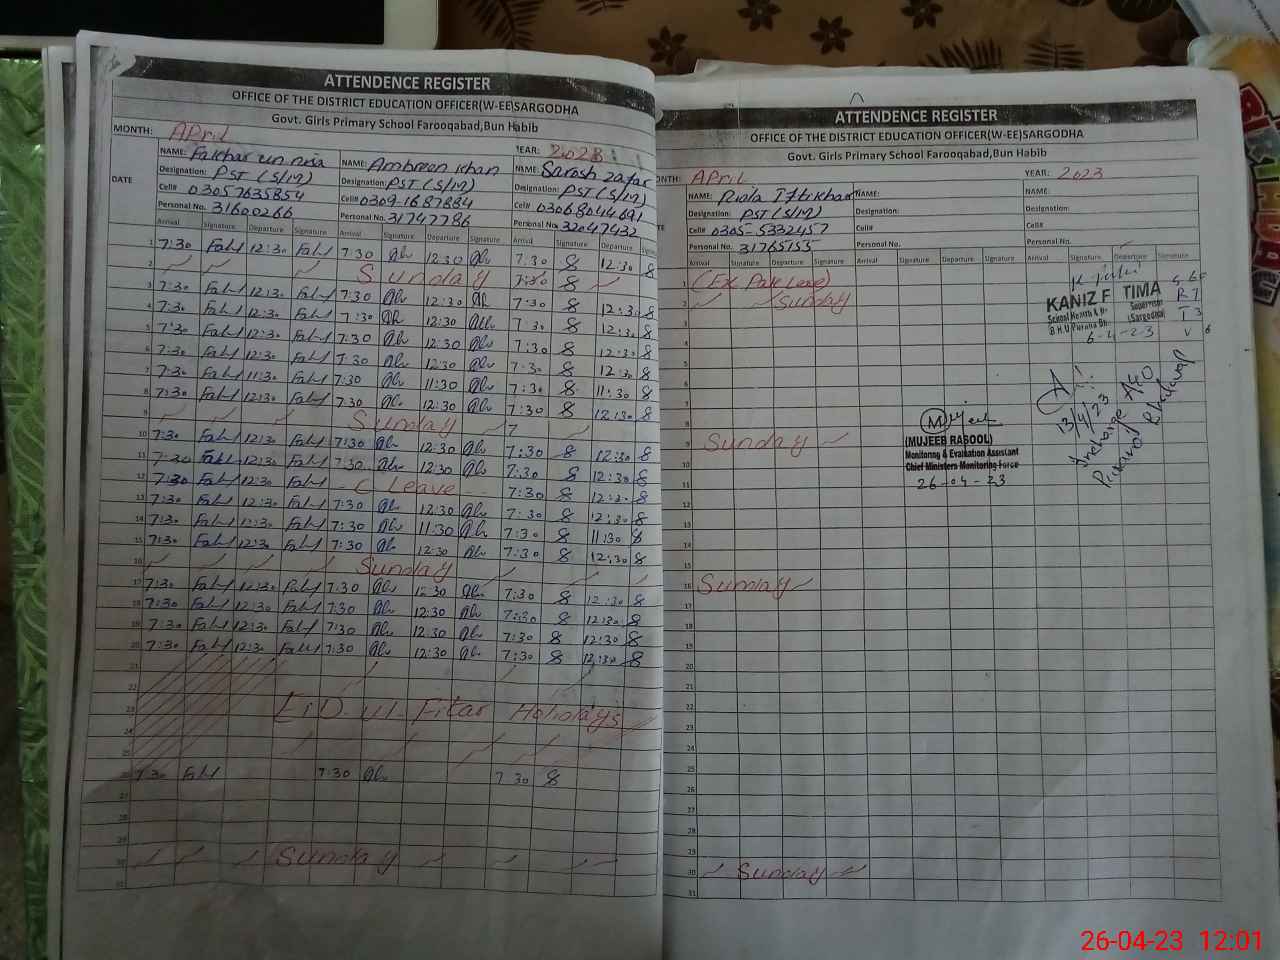 ATTENDENCE REGISTER
OFFICE OF THE DISTRICT EDUCATION OFFICER(W-EE)SARGODHA
Govt. Girls Primary School Farooqabad,Bun Habib
MONTH: April YEAR: 2023
DATE
NAME: Fakhar un nisa NAME: Ambreen Khan NAME: Sarosh Zafar
Designation: PST (S/M) Designation: PST (S/M) Designation: PST (S/M)
Cell# 03057635854 Cell# 0309-1687884 Cell# 03068044691
Personal No. 31600266 Personal No. 31747786 Personal No. 32047432
Arrival Signature Departure Signature Arrival Signature Departure Signature Arrival Signature Departure
1 7:30 12:30 7:30 12:30 7:30 12:30
2 Sunday
3 7:30 12:30 7:30 12:30 7:30 12:30
4 7:30 12:30 7:30 12:30 7:30 12:30
5 7:30 12:30 7:30 12:30 7:30 12:30
6 7:30 12:30 7:30 12:30 7:30 12:30
7 7:30 11:30 7:30 11:30 7:30 11:30
8 7:30 12:30 7:30 12:30 7:30 12:30
9 Sunday
10 7:30 12:30 7:30 12:30 7:30 12:30
11 7:30 12:30 7:30 12:30 7:30 12:30
12 7:30 12:30 C Leave 7:30 12:30
13 7:30 12:30 7:30 12:30 7:30 12:30
14 7:30 7:30 11:30 7:30 11:30
15 7:30 12:30 7:30 12:30 7:30 12:30
16 Sunday
17 7:30 12:30 7:30 12:30 7:30 12:30
18 7:30 12:30 7:30 12:30 7:30 12:30
19 7:30 12:30 7:30 12:30 7:30 12:30
20 7:30 12:30 7:30 12:30 7:30 12:30
21
22
23 EiD-ul-Fitar Holidays
24
25
26 7:30 7:30 7 30
27
28
29
30 Sunday
31
ATTENDENCE REGISTER
OFFICE OF THE DISTRICT EDUCATION OFFICER(W-EE)SARGODHA
Govt. Girls Primary School Farooqabad,Bun Habib
April YEAR: 2023
NAME: Iftikhar NAME: NAME:
Designation: PST (S/M) Designation: Designation:
Cell# 0305-5332457 Cell# Cell#
Personal No. 31765155 Personal No. Personal No.
Arrival Signature Departure Signature Arrival Signature Departure Signature Arrival Signature Departure Signature
1 (Ex Pak Leave)
2 Sunday
KANIZ FATIMA
School Health & Supervisor
B.H.U (Sargodha)
6-4-23
3
4
5
6
7
8
13/4/23
Incharge AEO
9 Sunday
(MUJEEB RASOOL)
Monitoring & Evaluation Assistant
Chief Ministers Monitoring Force
26-04-23
10
11
12
13
14
15
16 Sunday
17
18
19
20
21
22
23
24
25
26
27
28
29
30 Sunday
31
26-04-23 12:01